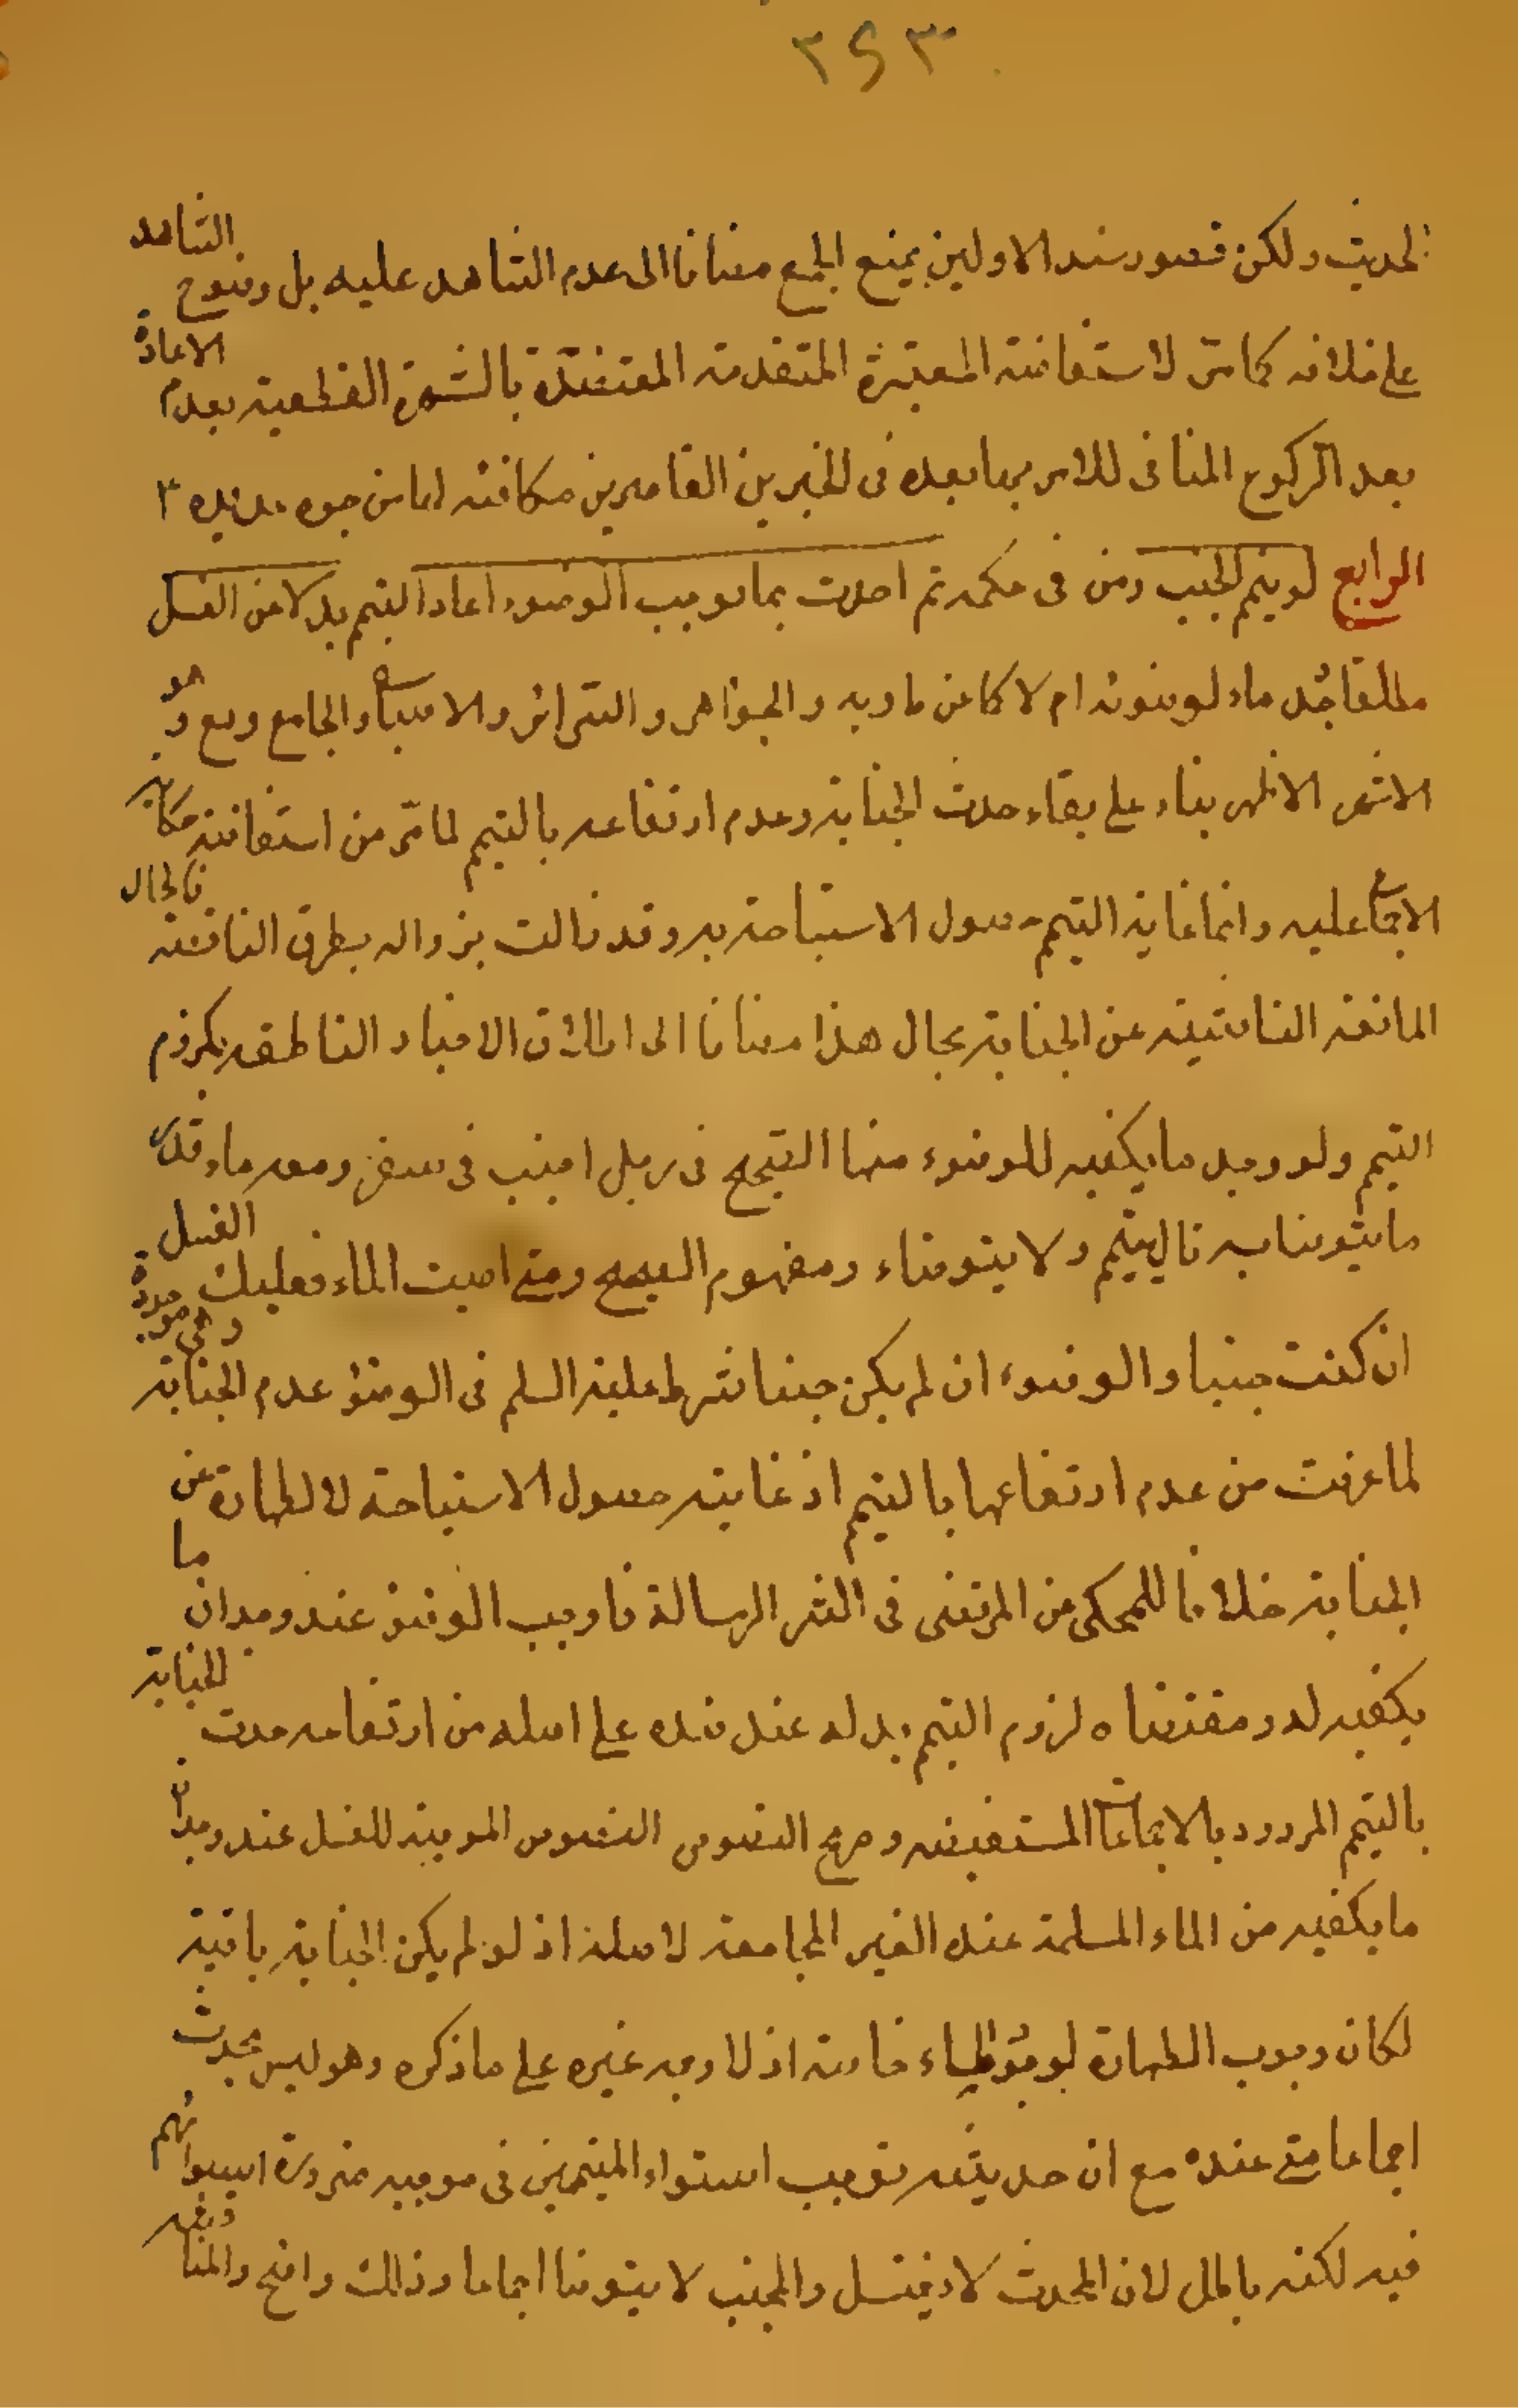 ٣٢٣
الحديث ولكن قصور سند الاولين يمنع الجمع مضافا الى عدم الشاهد عليه بل وضوح الشاهد
على خلافه كما مر لاستفاضة المعتبرة المتقدمة المعتضدة بالشهرة القطعية بعدم الاعادة
بعد الركوع المنافى للامر بها بعده فى الخبرين القاصرين مكافئة لها من وجوه عديده
الرابع لو تيمم الجنب ومن فى حكمه ثم احدث بما يوجب الوضوء اعاد التيمم بدلا من الغسل
مطلقا وجد ماء لوضوئه ام لا كما عن والجواهر والسرائر والاصباح والجامع ويع وهو
الاشهر الاظهر بناء على بقاء حدث الجنابة وعدم ارتفاعه بالتيمم لما مر من استفاضة حكاية
الاجماع عليه وانما غاية التيمم حصول الاستباحة به وقد زالت بزواله بطرق الناقضة فالحال
المانعة الناشئة عن الجنابة بحال هذا مضافا الى اطلاق الاخبار الناطقة بلزوم
التيمم ولو وجد ما يكفيه للوضوء منها الصحيح فى رجل اجنب فى سفر ومعه ماء قدر
ما يتوضا به قال يتيمم ولا يتوضاء ومفهوم الصحيح ومتى اصبت الماء فعليك الغسل
ان كنت جنبا والوضوء ان لم يكن جنبا شرط عليه السلم فى الوضوء عدم الجنابة وهى موجودة
لما عرفت من عدم ارتفاعها بالتيمم اذ غايته حصول الاستباحة لا الطهارة من
الجنابة خلافا للمحكى من المرتضى فى الشر الرسالة فاوجب الوضوء عند وجدان ما
يكفيه له ومقتضاه لزوم التيمم بدله عند فقده على اصله من ارتفاعه حدث الجنابة
بالتيمم المردود بالاجماعات المستفيضه وصريح النصوص الموجبة للغسل عند وجدان
ما يكفيه من الماء المسلمة عنده الغير المجامعة لاصله اذ لو لم يكن الجنابة باقية
لكان وجوب الطهارة لوجود الماء خاصة اذ لا وجه غيره على ما ذكره وهو ليس بحدث
اجماعا حتى عنده مع ان حديثه توجب استواء المتيممين فى موجبه ضرورة استوائهم
فيه لكنه باطل لان المحدث لا يغتسل والمجنب لا يتوضا اجماعا وذلك واضح والمناقشة